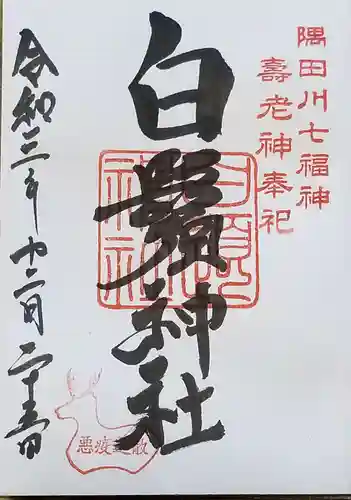 隅田川七福神
壽老神奉祀
白鬚神社
白鬚神社
令和三年十二月二十五日
悪疫退散